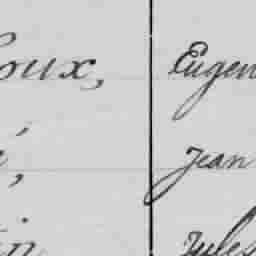 oux, Eugen
, Jean
in Jules